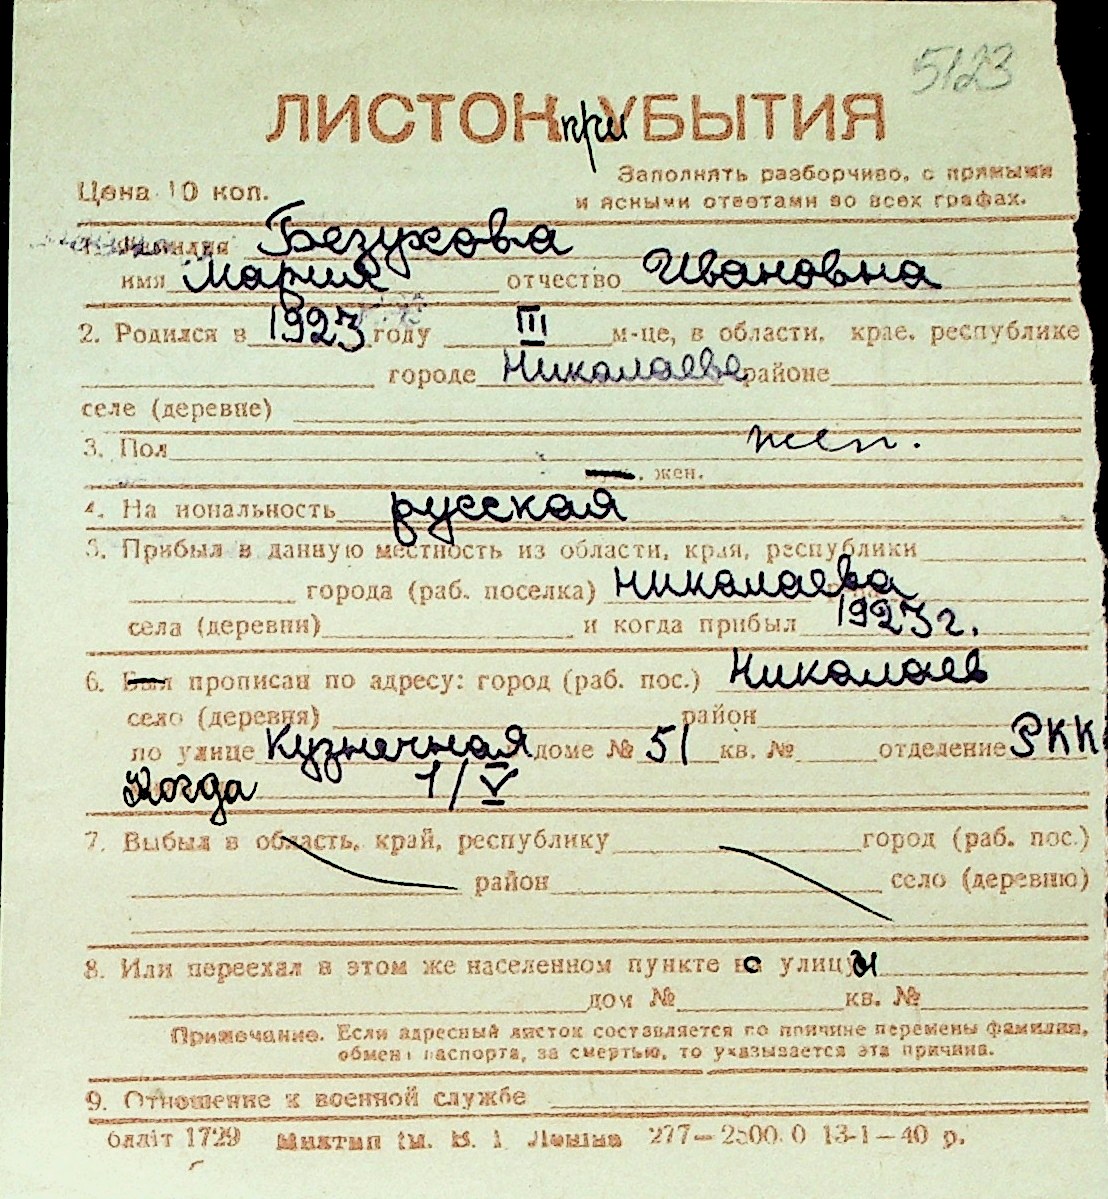 5123
ЛИСТОК при УБЫТИЯ
Заполнять разборчиво, с прямыми
Цена 10 коп.
и ясными ответами во всех графах.
1. Фамилия Безухова
имя Мария отчество Ивановна
2. Родился в 1923 году III м-це, в области, крае, республике
городе Николаеве районе
селе (деревне)
3. Пол жен.
жен.
4. На иональность русская
5. Прибыл в данную местность из области, края, республики
города (раб. поселка) Николаева
села (деревни) и когда прибыл 1923 г.
6. Был прописан по адресу: город (раб. пос.) Николаев
село (деревня) район
по улице Кузнечная доме № 51 кв. № отделение РКК
Когда 1/V
7. Выбыл в область, край, республику город (раб. пос.)
район село (деревню)
8. Или переехал в этом же населенном пункте с улицы
дом № кв. №
Примечание. Если адресный листок составляется по причине перемены фамилии,
обмен паспорта, за смертью, то указывается эта причина.
9. Отношение к военной службе
бліт 1729 277—2500.0 13-1—40 р.